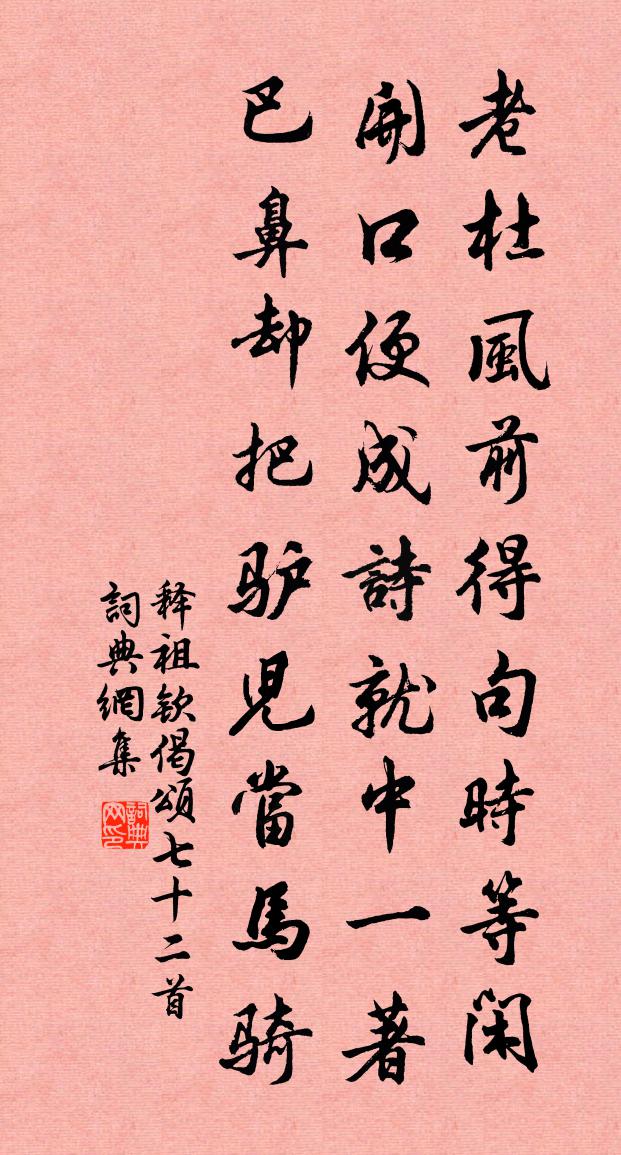 老杜風前得句時等闲
開口便成詩就中一著
巴鼻却把驴児當馬騎
释祖钦偈頌七十二首
詞典網集
詞典网印